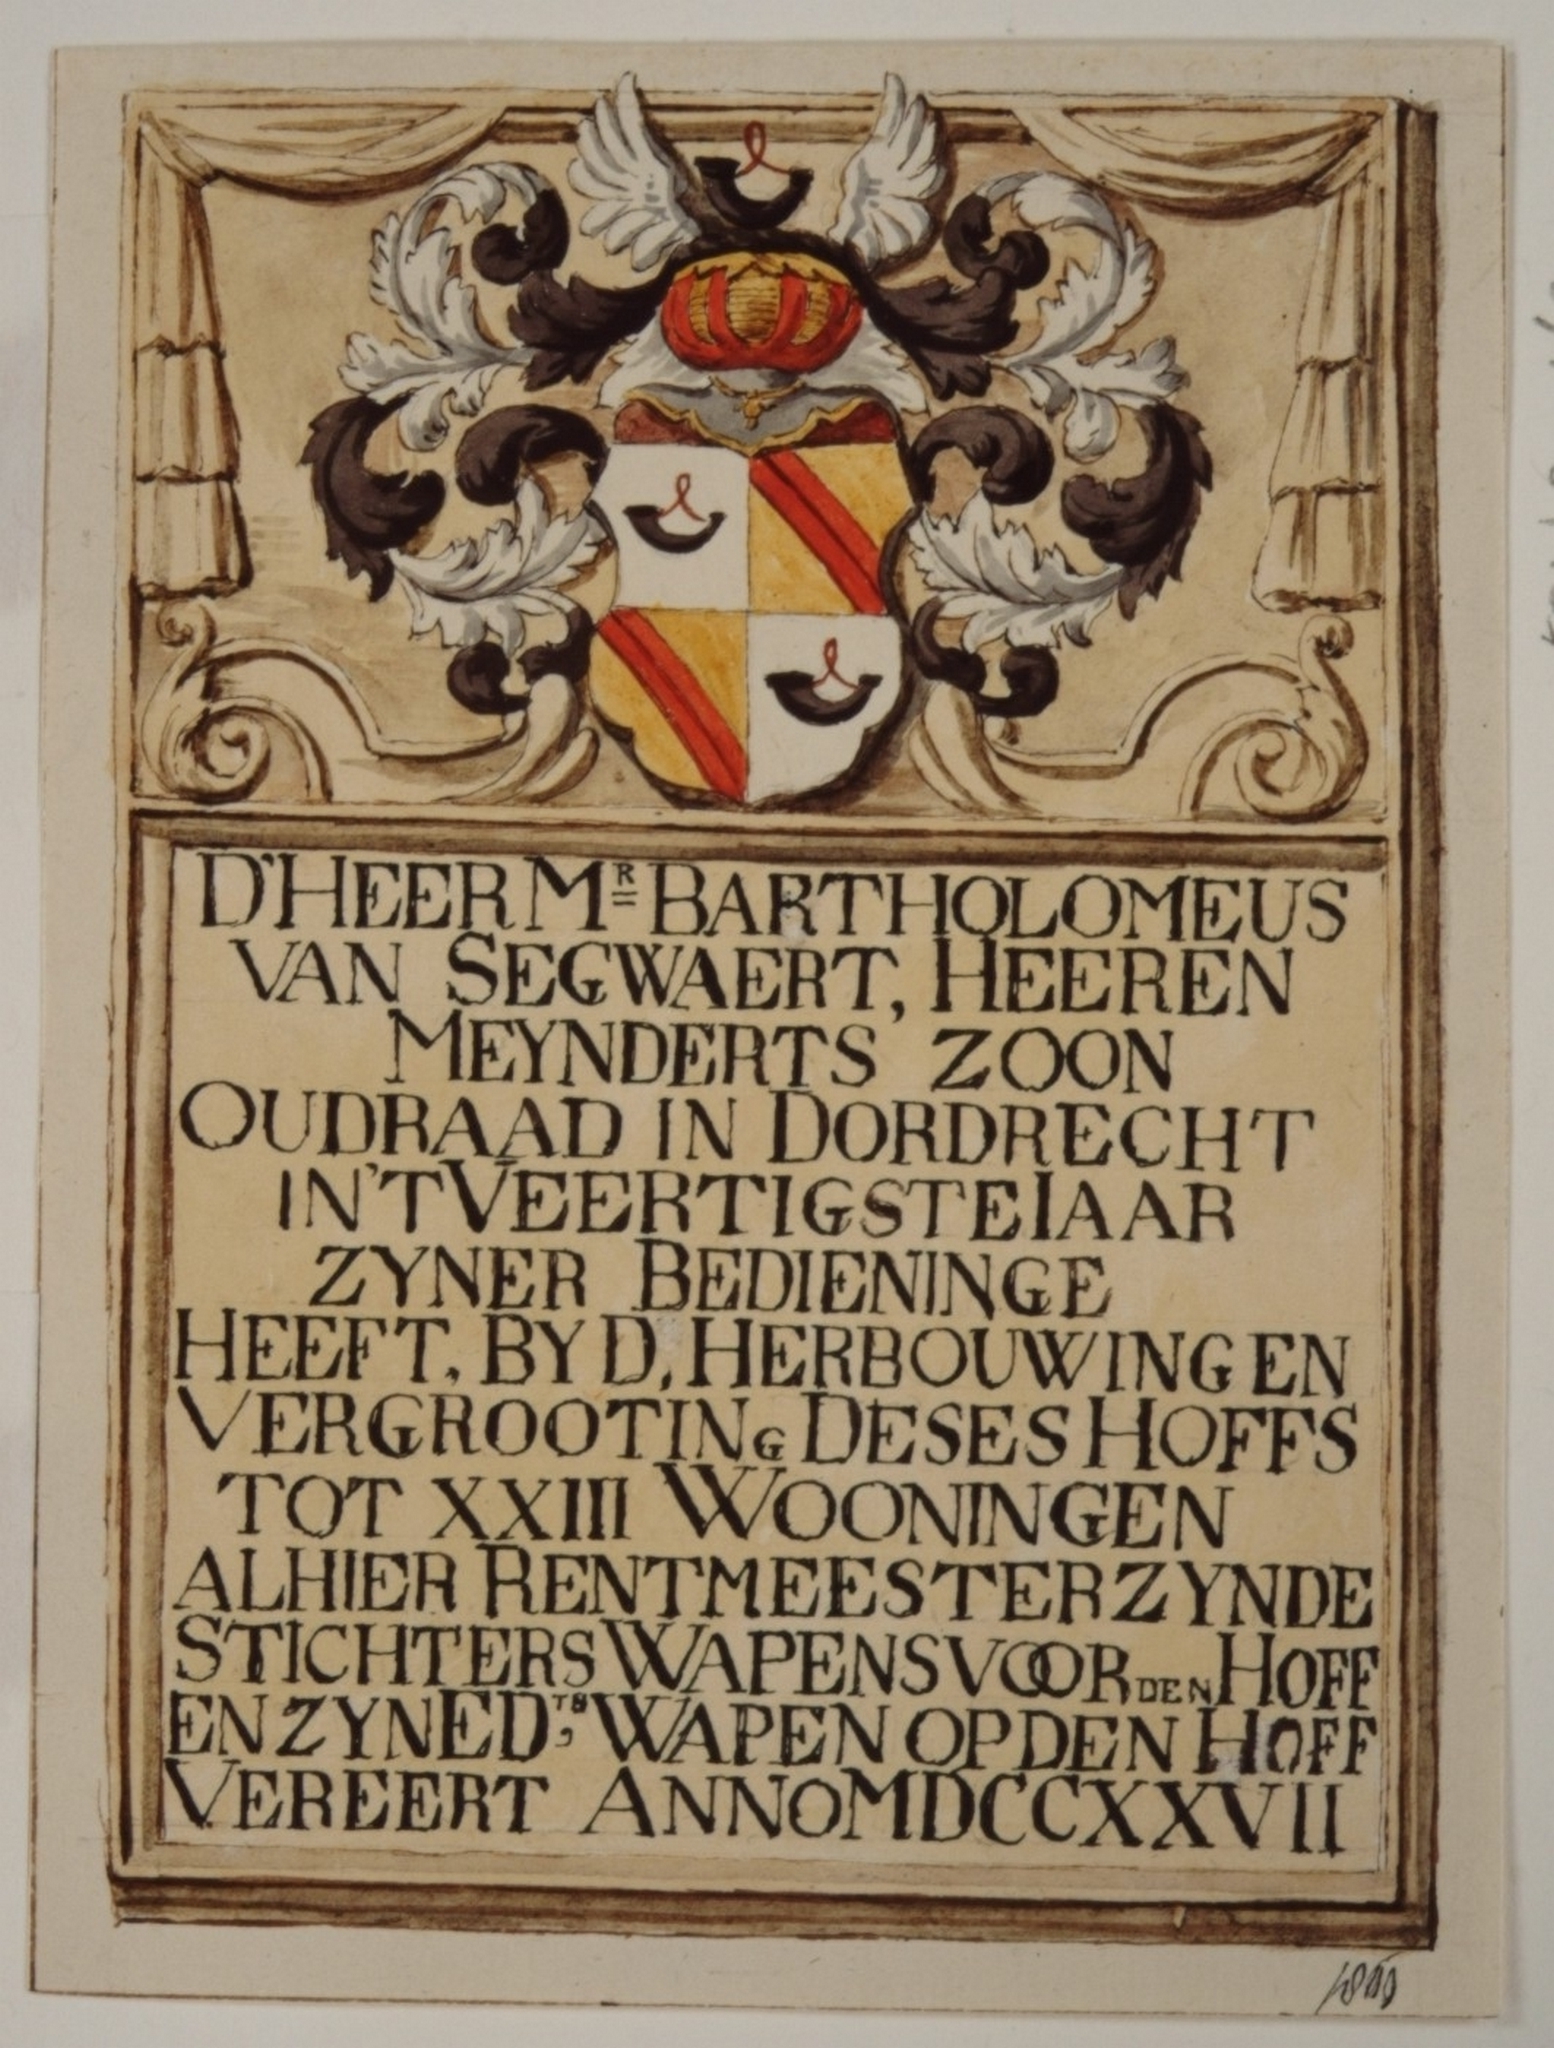 D'HEER MR BARTHOLOMEUS
VAN SEGWAERT, HEEREN
MEYNDERTS ZOON
OUDRAAD IN DORDRECHT
IN'T VEERTIGSTE IAAR
ZYNER BEDIENINGE
HEEFT, BY D, HERBOUWING EN
VERGROOTING DESES HOFFS
TOT XXIII WOONINGEN
ALHIER RENTMEESTER ZYNDE
STICHTERS WAPENS VOOR DEN HOFF
EN ZYN ED,TS WAPEN OP DEN HOFF
VEREERT ANNO MDCCXXVII